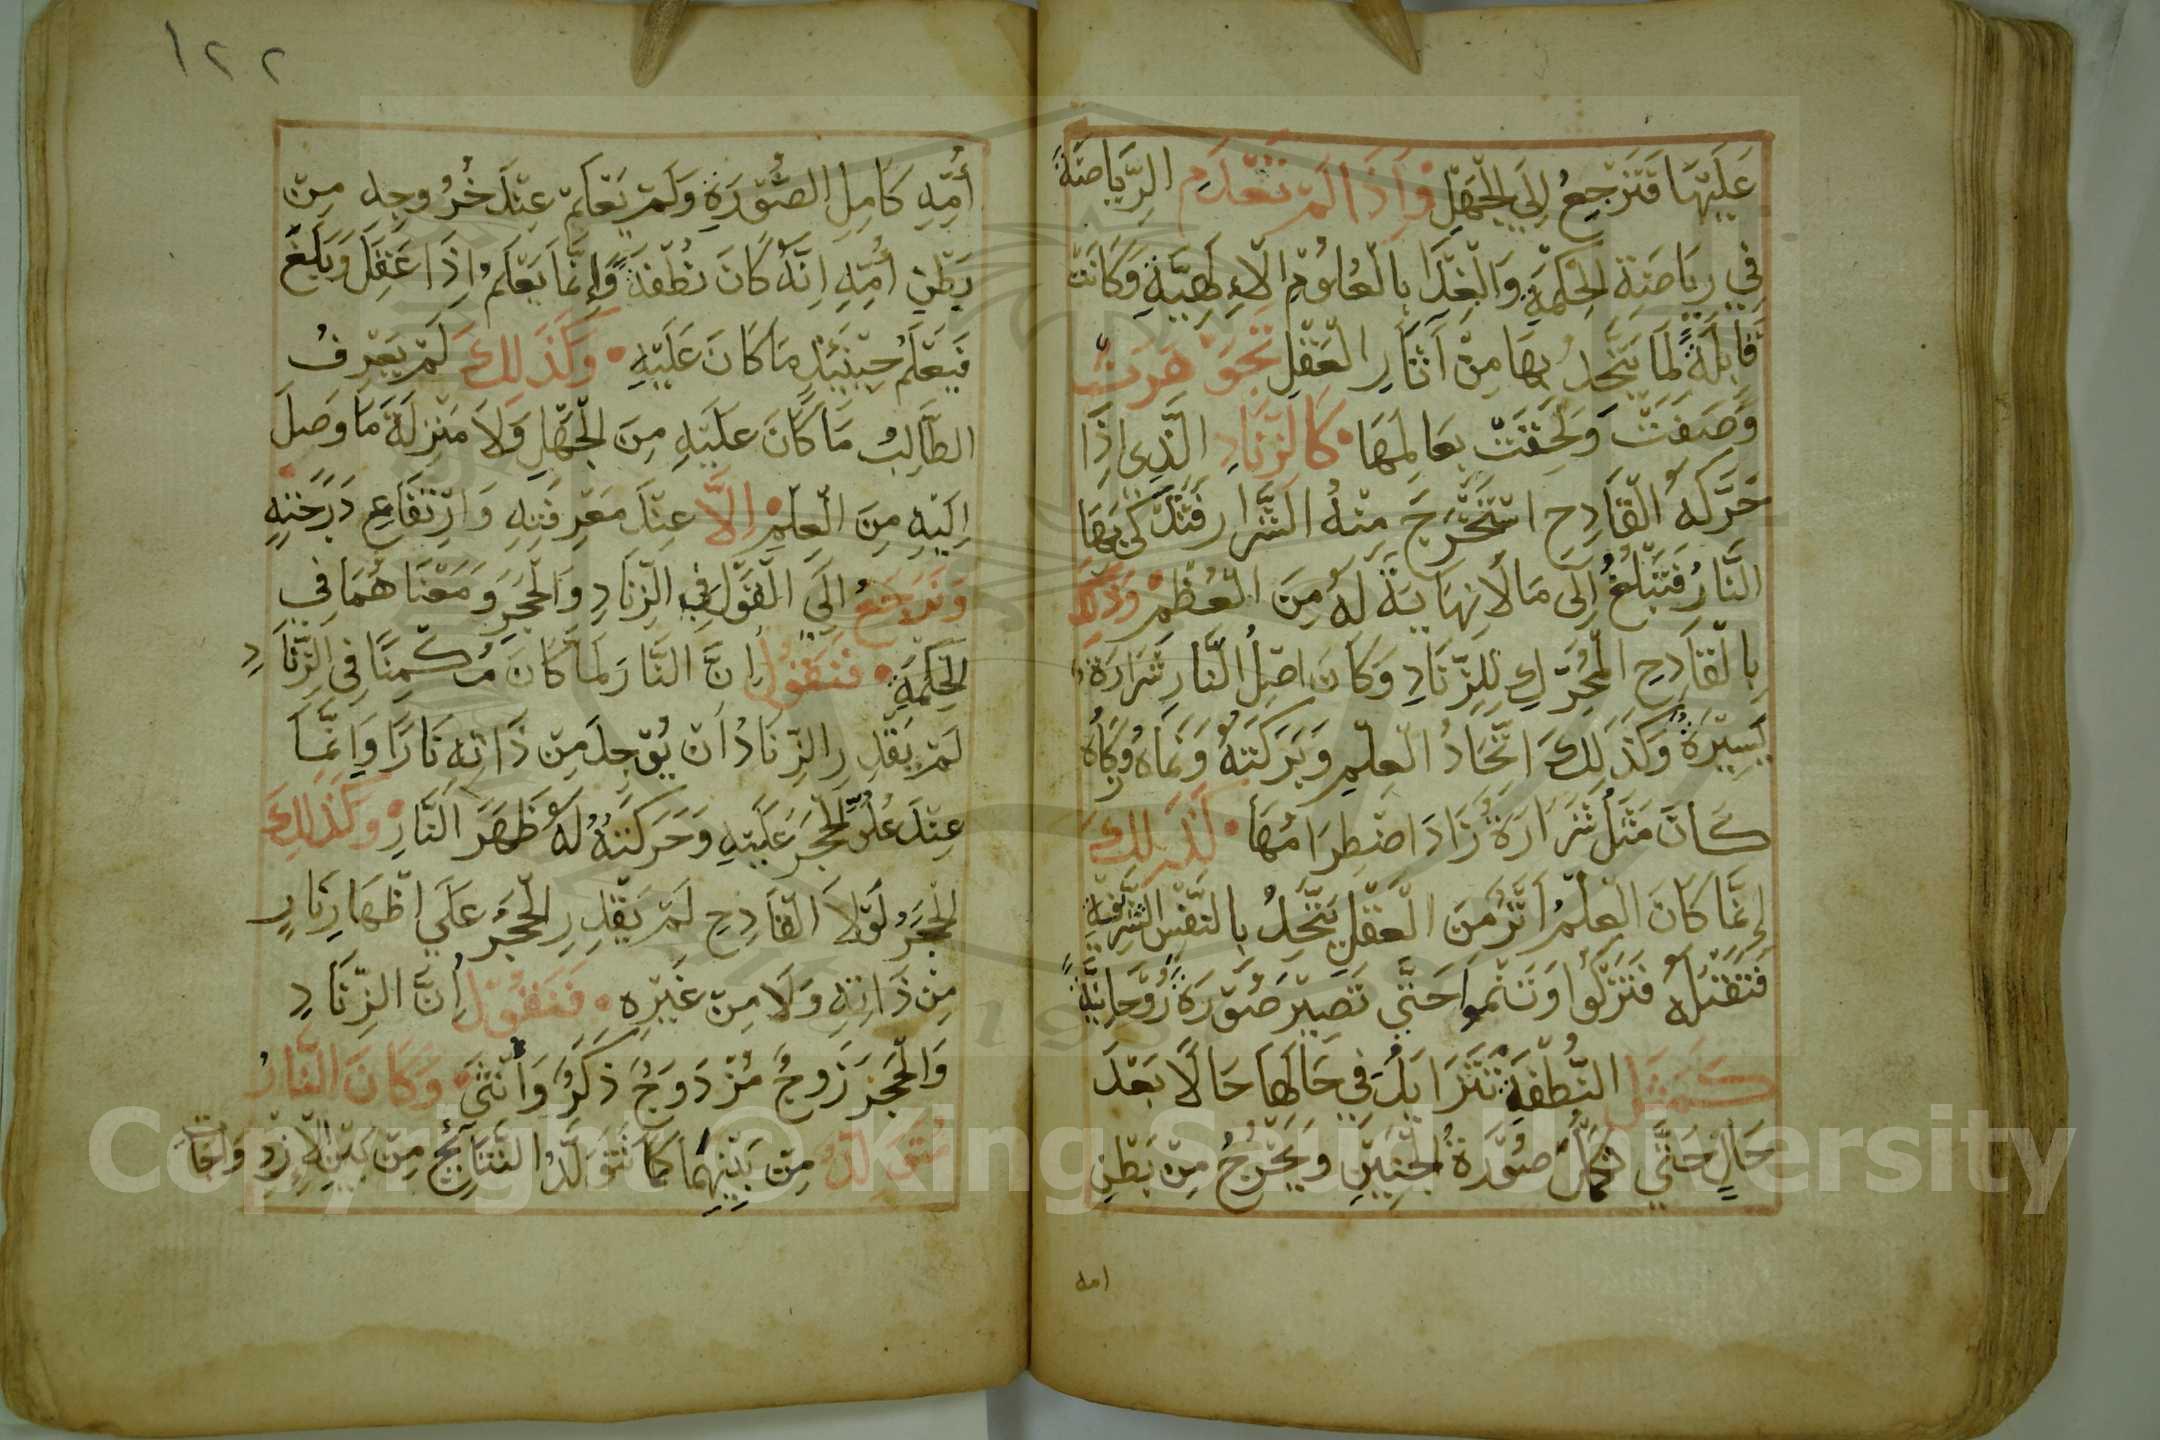 عَلَيْهَا فَتَرْجِعُ إِلَي الْجَهْلِ وَاِذَا لَمْ تَعْدَمِ الرِّيَاضَةَ
فِي رِيَاضَةِ الحِكْمَةِ وَالْغِذَا بِالْعُلُوْمِ الْاِلَهِيَّةِ وَكَانَتْ
قَابِلَةً لَمَا يَتَّحِدُ بِهَا مِنْ آثَارِ الْعَقْلِ تَجَوْهَرَتْ
وَصَفَتْ وَلَحِقَتْ بِعَالِمَهَا كَالزِّنَادِ الَّذِي اِذَا
حَرَّكَهُ الْقَادِح اسْتَخْرَجَ مِنْهُ الشَّرَار فَتَذَّكَى بِهَا
النَّارُ فَتَبْلُغُ اِلَى مَا لَا نِهَايَةَ لَهُ مِنَ الْعُظْمِ وَذَلِكَ
بِالْقَادِحِ الْمُحَرِّكِ لِلزِّنَادِ وَكَانَ اصْلُ النَّارِ شَرَارَةً
يَسِيْرَةً وَكَذَلِكَ اتِّحَادُ الْعِلْمِ وَبَرَكَتَهُ وَنَمَاهُ وَزَكَاه
كَانَ مَثَلُ شَرَارَةٍ زَادَ اضْطِرَامُهَا كَذَلِكَ
اِنَّمَا كَانَ الْعِلْمُ اَثَرٌ مِنَ الْعَقْلِ يَتَّحِدُ بِالنَّفْسِ الشَّرِيْفَةِ
فَتَقْبَلُهُ فَتَزْكُوا وَتَنْمُوا حَتَّي تَصِيْرَ صُوْرَةً رُوْحَانِيَّةً
كَمَثَلِ النُّطْفَةِ تَتَزَايَدُ فِي حَالِهَا حَالًا بَعْدَ
حَالٍ حَتَّي تَكْمُلَ صُوْرَةُ الجَنِيْنِ وَيَخْرُجُ مِنْ بَطْنِ
امه
١٢٢
أُمِّهِ كَامِلَ الصُّوْرَةِ وَلَمْ يَعْلَمْ عِنْدَ خُرُوجِه مِنْ
بَطْنِ اُمِّهِ اِنَّهُ كَانَ نُطْفَةً وَاِنَّمَا يَعْلَمُ اِذَا عَقَلَ وَبَلَغَ
فَيَعْلَمُ حِيْنَئِذٍ مَا كَانَ عَلَيْهِ وَكَذَلِكَ لَمْ يَعْرِفُ
الطَّالِبُ مَا كَانَ عَلَيْهِ مِنَ الْجَهْلِ وَلَا مَنْزِلَةَ مَا وَصَلَ
اِلَيْهِ مِنَ الْعِلْمِ اِلَّا عِنْدَ مَعْرِفَتِهِ وَارْتِفَاعِ دَرَجَتِهِ
وَنَرْجِعُ اِلَي الْقَوْلِ فِي الزِّنَادِ وَالْحَجَرِ وَمَعْنَاهُمَا فِي
الحِكْمَةِ فَنَقُولُ اِنَّ النَّارَ لَمَا كَانَ مُكْمِنًا فِى الزِّنَادِ
لَمْ يَقْدِرِ الزِّنَادُ اَنْ يُوْجِدَ مِنْ ذَاتِهِ نَارًا وَاِنَّمَا
عِنْدَ عُلُوِّ الْحَجَرِ عَلَيْهِ وَحَرَكَتُهُ لَهُ ظَهَرَ النَّارِ وكَذَلِكَ
الْحَجَرُ لَوْلَا الْقَادِحِ لَمْ يَقْدِرِ الْحَجَرُ عَلَي اظْهَارِ نَارٍ
مِنْ ذَاتِهِ وَلَا مِنْ غَيْرِهِ فَنَقُوْلُ اِنَّ الزِّنَادِ
وَالْحَجَرَ زَوجٌ مُزْدَوِجٌ ذَكَرٌ وَأُنْثَى وَكَانَ النَّارُ
مُتَوَلِّدٌ مِنْ بَيْنِهِمَا كَمَا تَتَوَلَّدُ النَّتَائِجُ مِنْ بَيْنِ الْاِزْدِوَاجَاتِ
Copyright © King Saud University